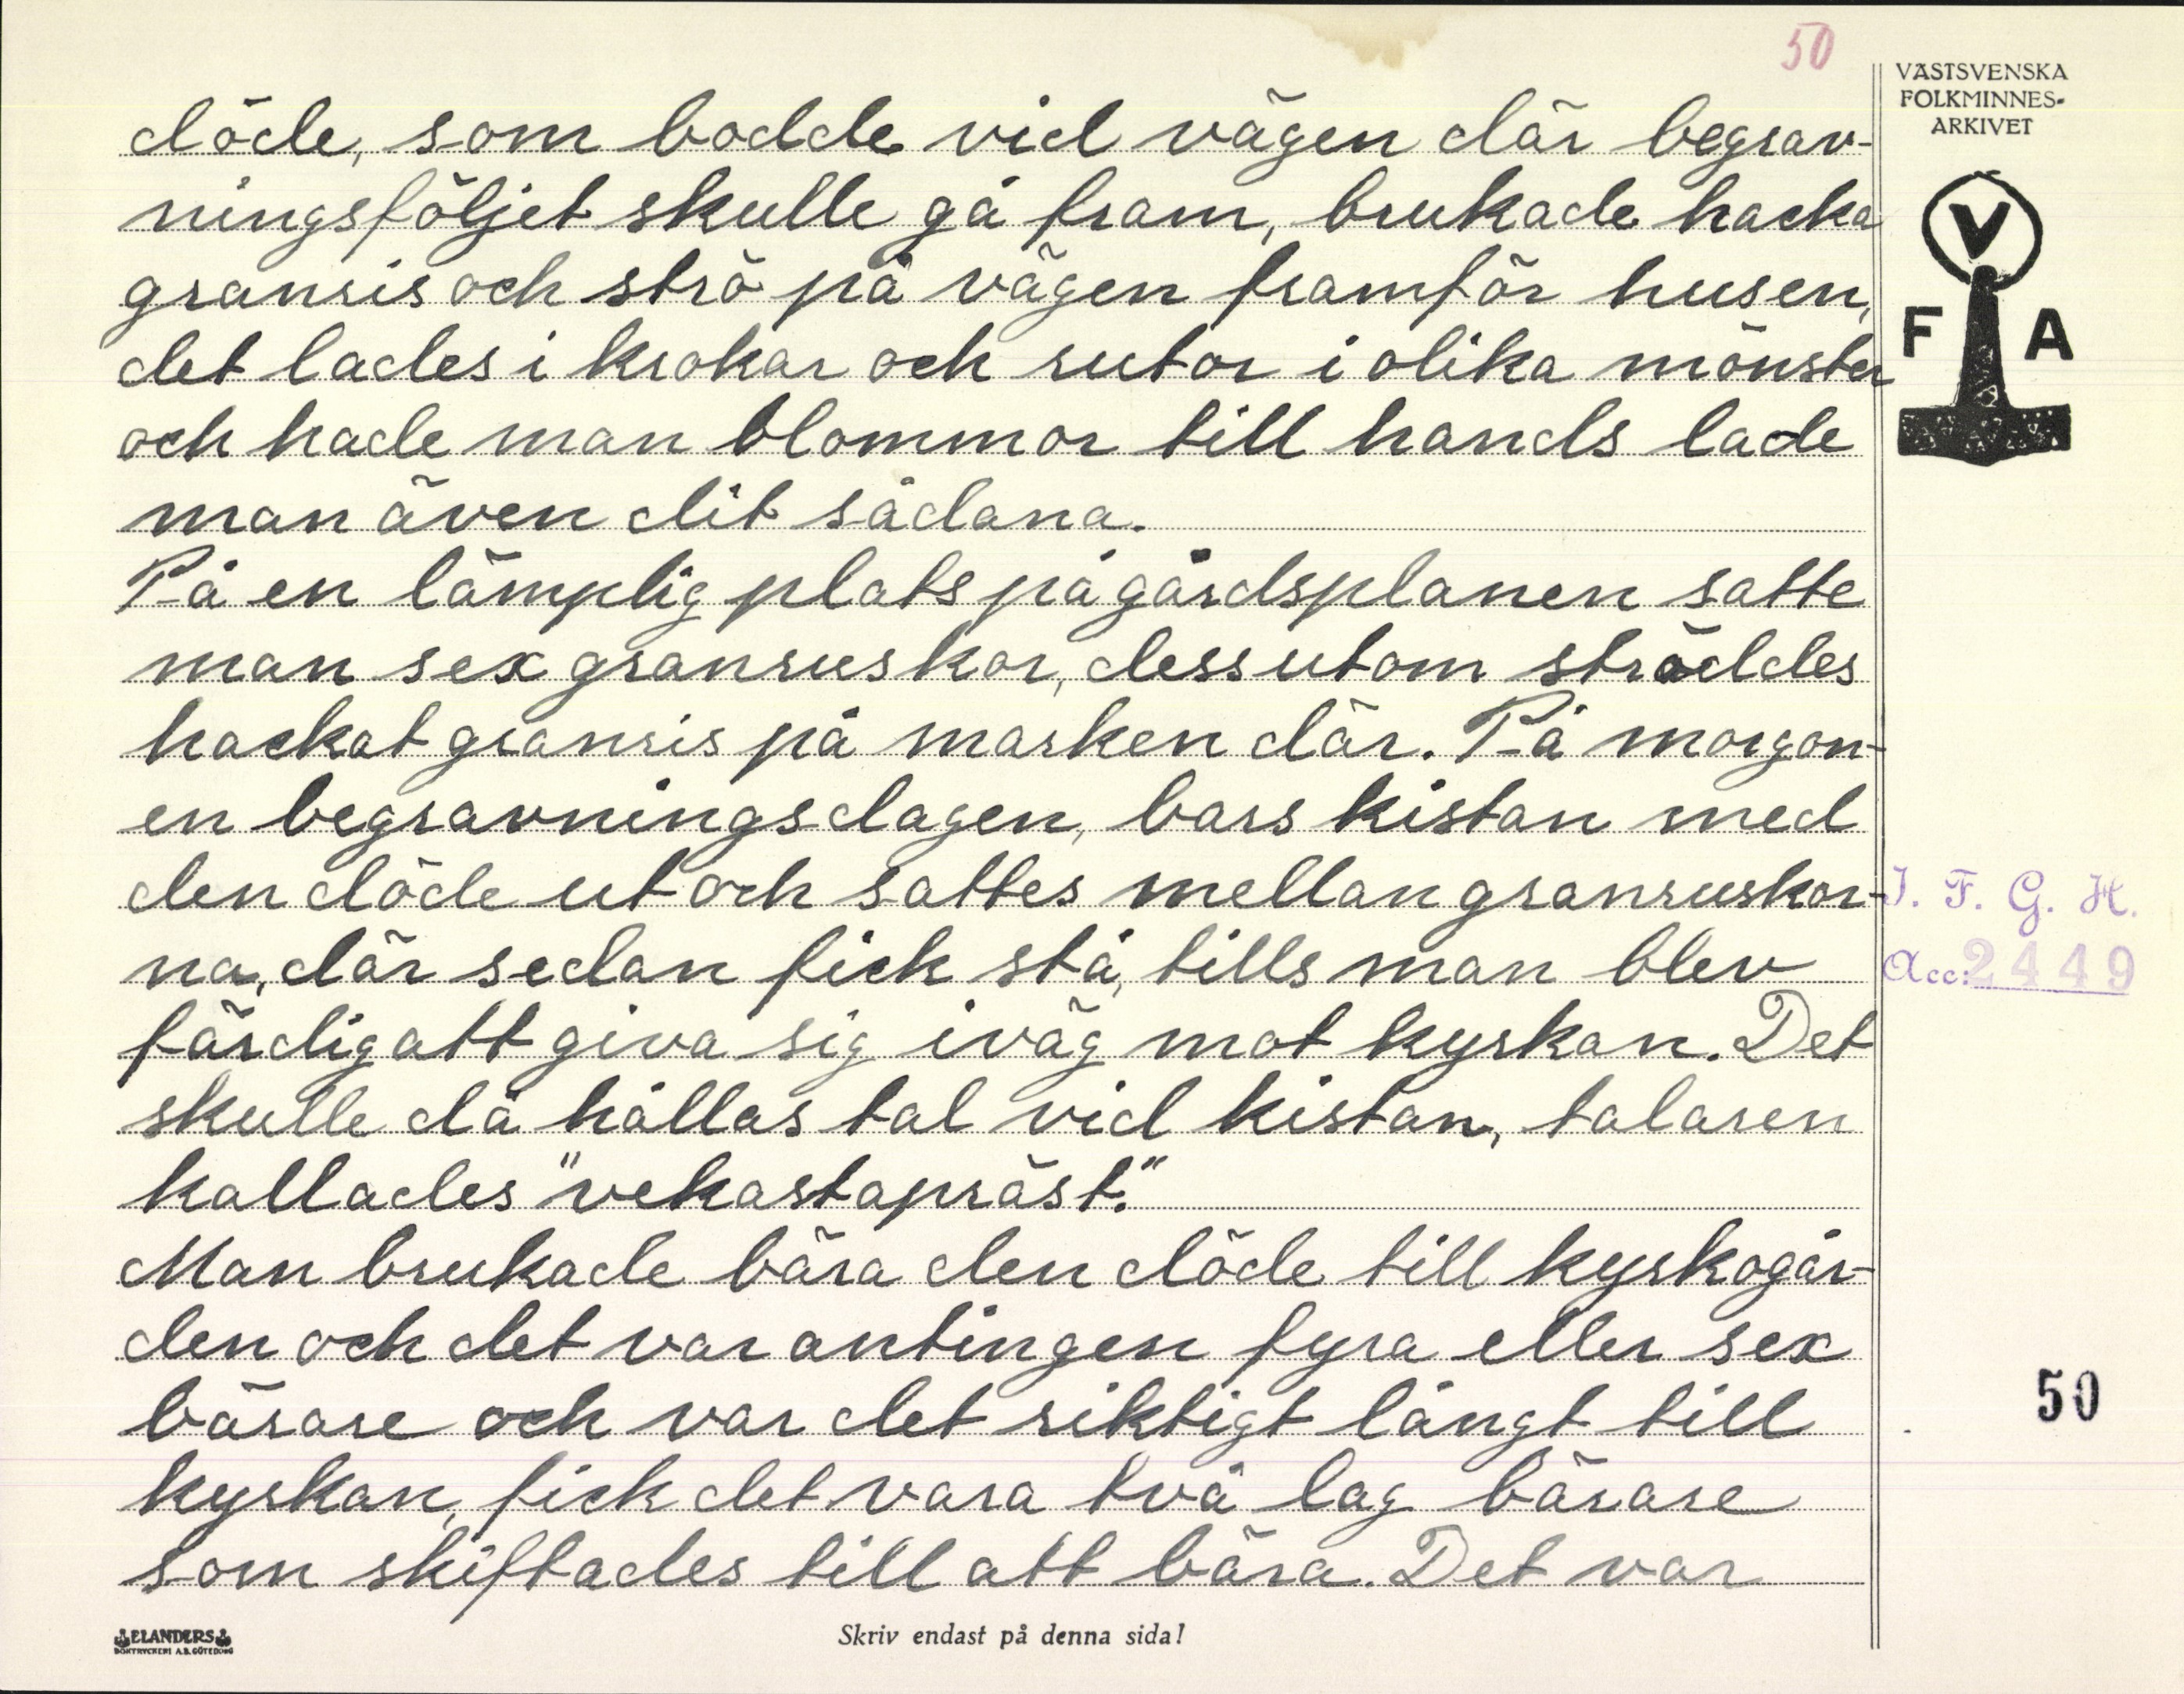 50
VÄSTSVENSKA
FOLKMINNES-
ARKIVET
V
F A
döde, som bodde vid vägen där begrav-
ningsföljet skulle gå fram, brukade hacka
granris och strö på vägen framför husen,
det lades i krokar och rutor i olika mönster
och hade man blommor till hands lade
man även dit sådana.
På en lämplig plats på gårdsplanen satte
man sex granruskor, dessutom ströddes
hackat granris på marken där. På morgon-
en begravningsdagen, bars kistan med
den döde ut och sattes mellan granruskor-
na, där sedan fick stå, tills man blev
färdig att giva sig iväg mot kyrkan. Det
skulle då hållas tal vid kistan, talaren
kallades "vekastapräst."
Man brukade bära den döde till kyrkogår-
den och det var antingen fyra eller sex
bärare och var det riktigt långt till
kyrkan, fick det vara två lag bärare
som skiftades till att bära. Det var
I. F. G. H.
Acc: 2449
50
ELANDERS
BOKTRYCKERI A.B. GÖTEBORG
Skriv endast på denna sida!